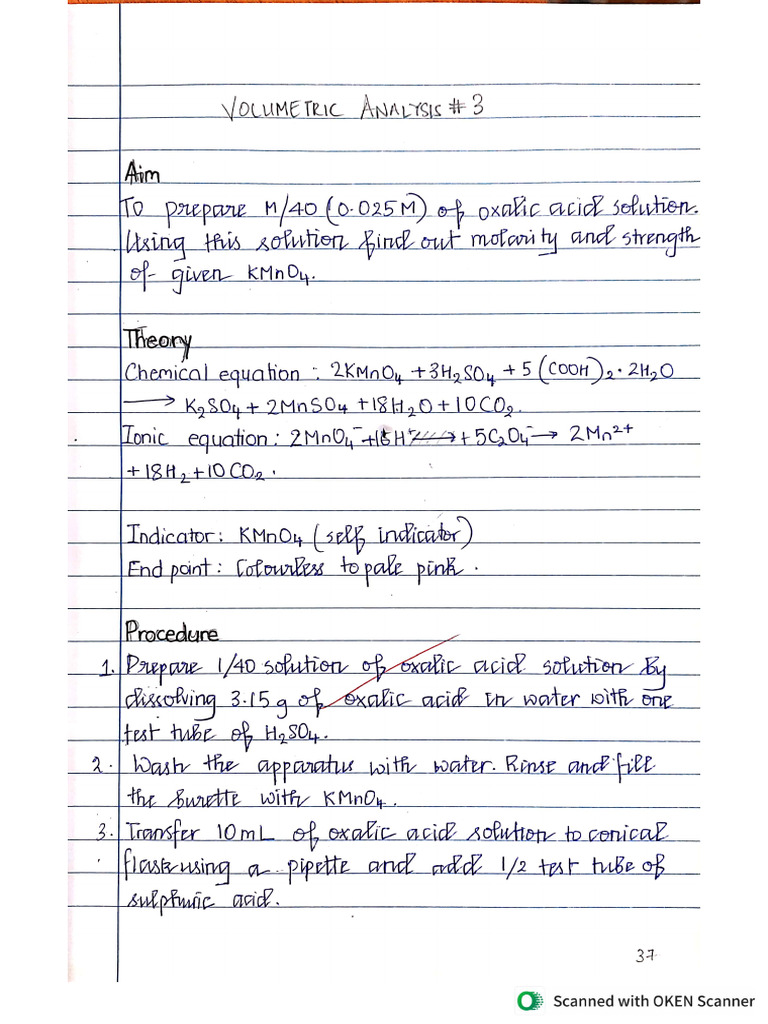 VOLUMETRIC ANALYSIS # 3
Aim
To prepare M/40 (0.025M) of oxalic acid solution.
Using this solution find out molarity and strength
of given KMnO₄.
Theory
Chemical equation : 2KMnO₄ + 3H₂SO₄ + 5 (COOH)₂·2H₂O
⟶ K₂SO₄ + 2MnSO₄ + 18H₂O + 10CO₂.
Ionic equation : 2MnO₄⁻ + 16H⁺ + 5C₂O₄⁻ → 2Mn²⁺
+ 18H₂ + 10CO₂.
Indicator : KMnO₄ (self indicator)
End point : Colourless to pale pink.
Procedure
1. Prepare 1/40 solution of oxalic acid solution by
dissolving 3.15 g of oxalic acid in water with one
test tube of H₂SO₄.
2. Wash the apparatus with water. Rinse and fill
the burette with KMnO₄.
3. Transfer 10 mL of oxalic acid solution to conical
flask using a pipette and add 1/2 test tube of
sulphuric acid.
37
Scanned with OKEN Scanner